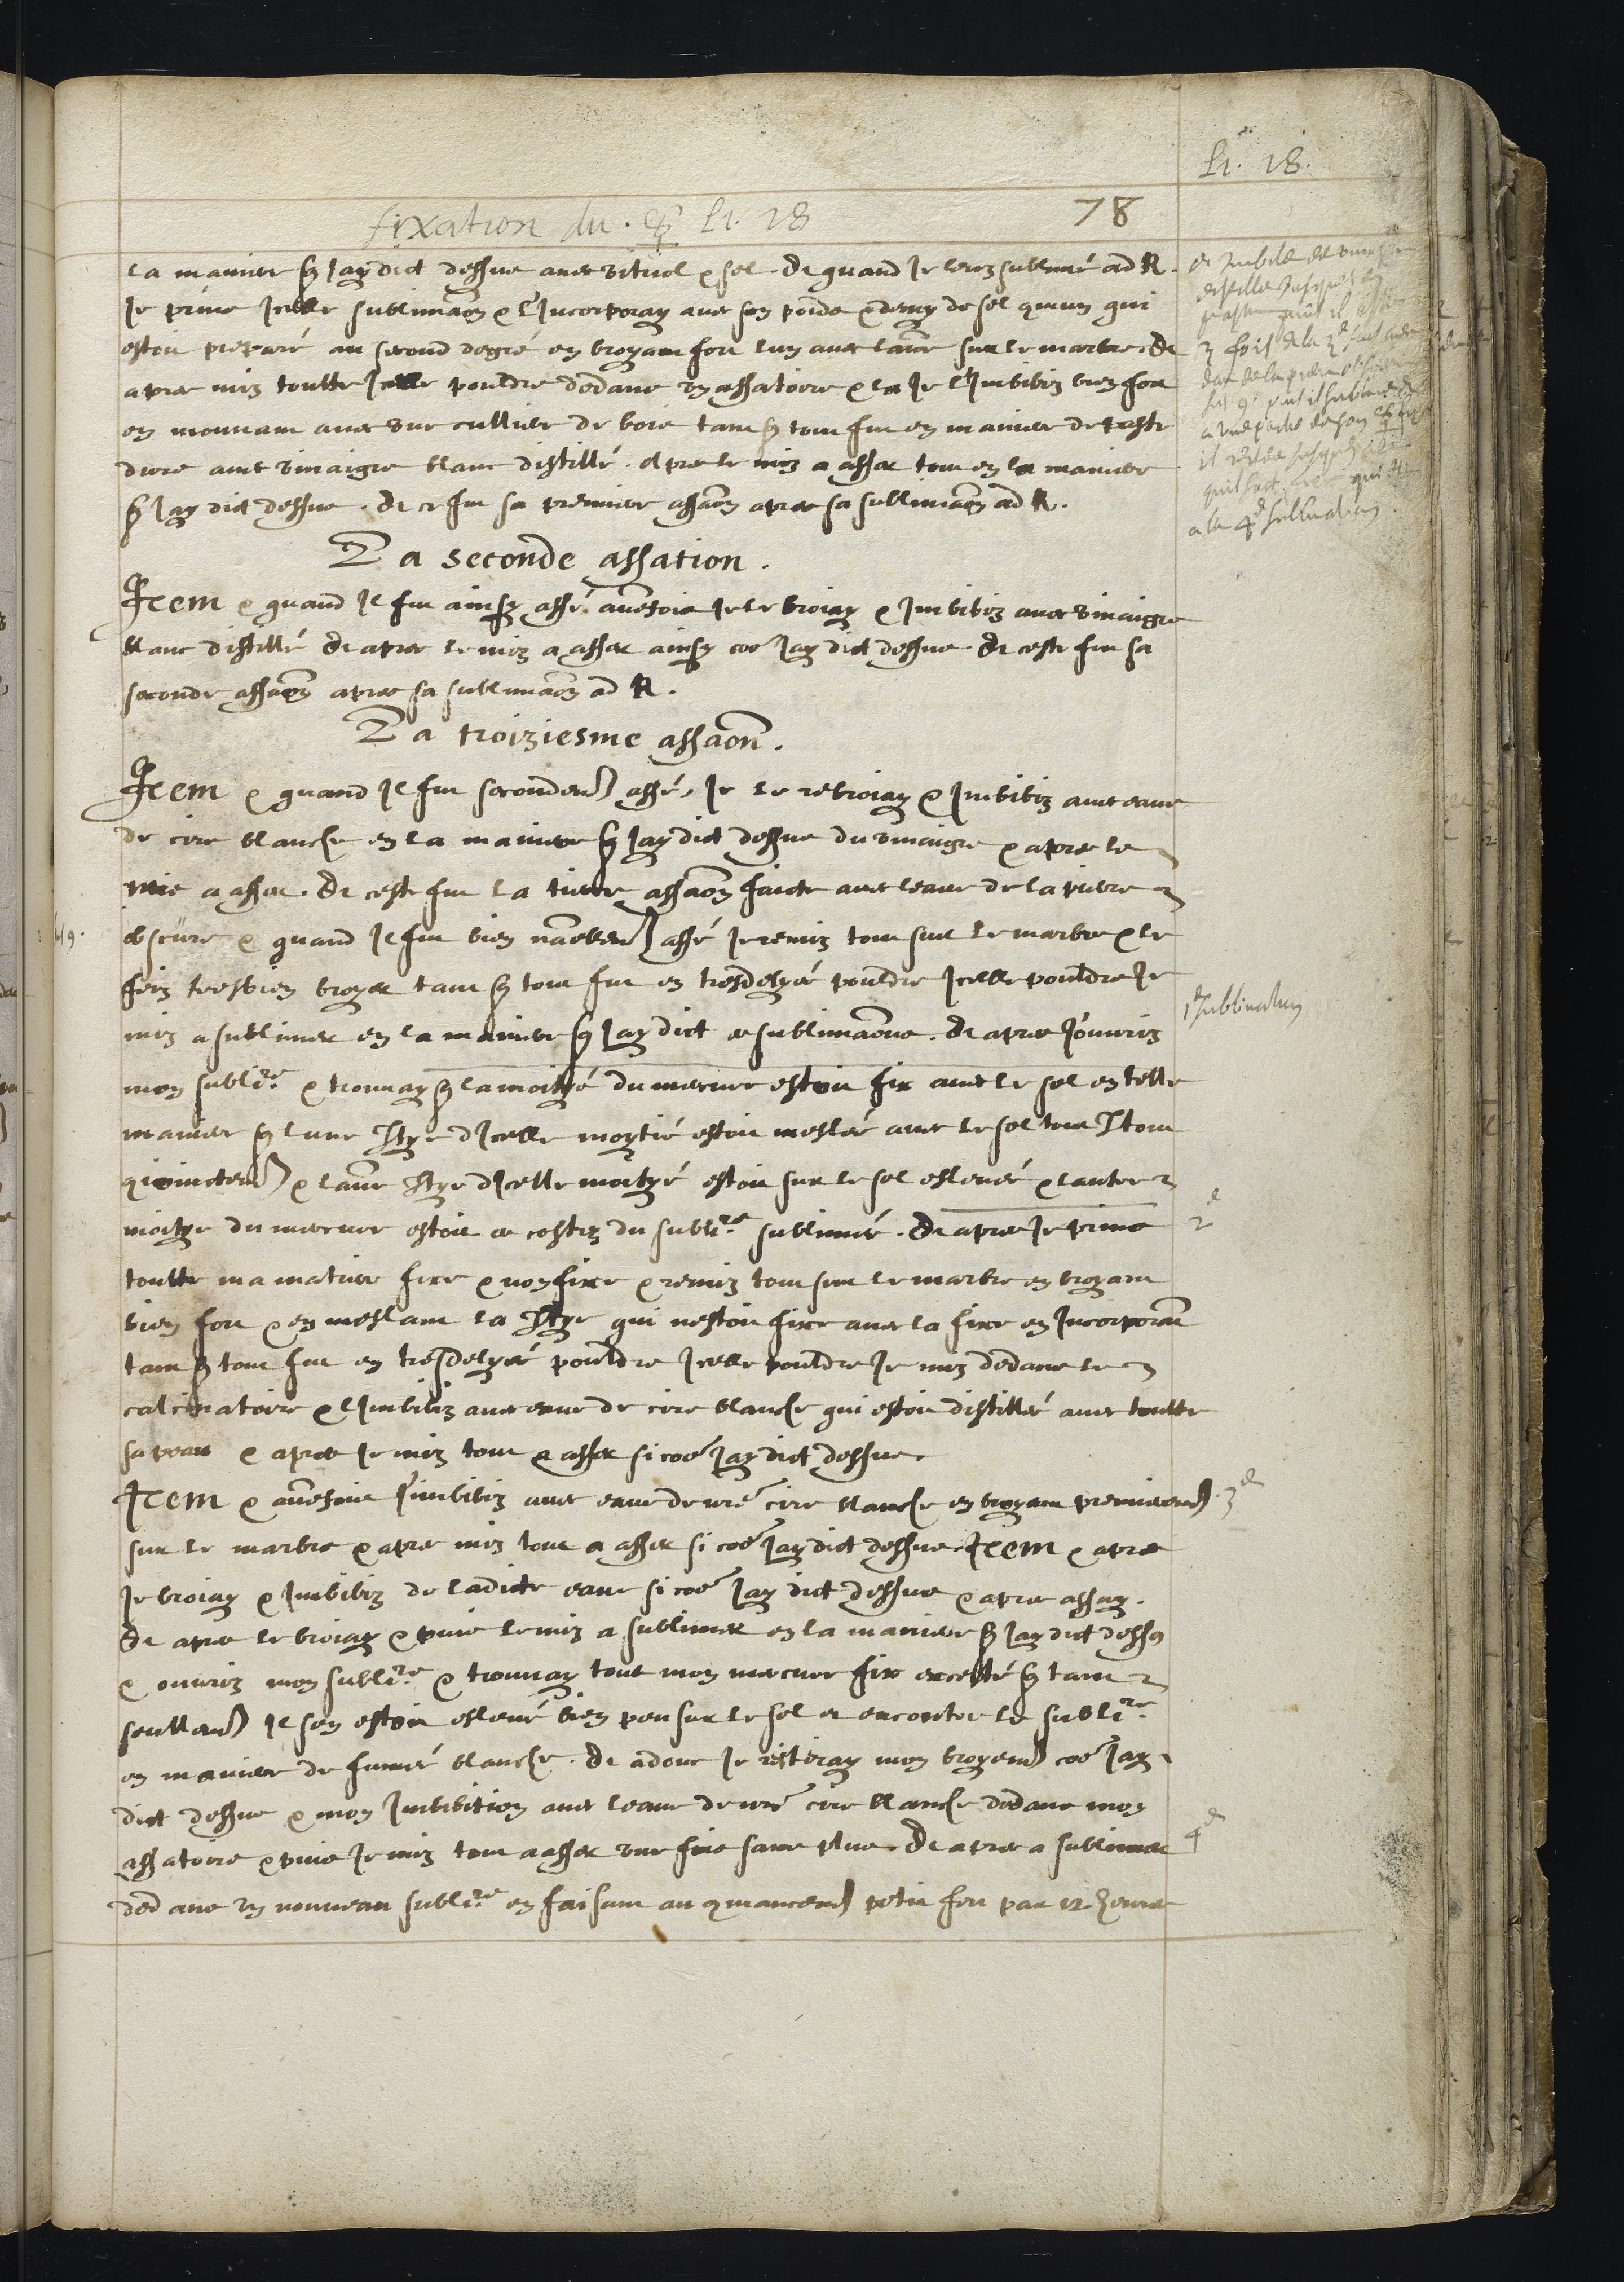 li. 18.
fixation du . ☿ li. 18
78
la maniere q̃ Jay dict dessus avec vitriol & sel. Et quand Je leuz sublimé ad R.
Je prins Jcelle sublimaõn & lJncorporay avec son poids & demy de sel qmun qui
estoit preparé au second degré en broyant fort lun avec laũe sur le marbre. Et
apres mis toutte Jcelle pouldre dedans un assatoire & la Je lJmbibiz bien fort
en mouvant avec une cullier de bois tant q̃ tout fut en maniere de paste
dure avec vinaigre blanc distillé. Apres le mis a asser tout en la maniere
q̃ Jay dict dessus. Et ce fut sa premiere assaõn apres sa sublimaõn ad R.
La seconde assation.
Jtem & quand Jl fut ainsy assé aũefois Je le broiay & Jmbibiz avec vinaigre
blanc distillé Et apres le mis a asser ainsy coe Jay dict dessus. Et ceste fut sa
seconde assaõn apres sa sublimaõn ad R.
La troiziesme assaõn.
Jtem & quand Jl fut secondem̃ assé, Je le rebroiay & Jmbibiz avec eaue
de cire blanche en la maniere q̃ Jay dict dessus du vinaigre & apres le
mis a asser. Et ceste fut la tierce assaõn faicte avec leaue de la pierre
obscure & quand Jl fut bien assé Je remis tout sur le marbre & le
feis tresbien broyer tant q̃ tout fut en tresdelyée pouldre Jcelle pouldre Je
mis a sublimer en la maniere q̃ Jay dict es sublimaõns. Et apres Jouvris
1e sublimation
mon subli.re & trouvay q̃ la moityé du mercure estoit fix avec le sel en telle
maniere q̃ lune Ptye dJcelle moytié estoit meslée avec le sel tout Jtout
qioinctem̃ & laũe Ptye dJcelle moityé estoit sur le sel eslevée & lautre
moitye du mercure estoit es costez du subli.re sublimée. Et apres Je prins
2e
toutte ma matiere fixe & non fixe & remis tout sur le marbre en broyant
bien fort & en meslant la Ptye qui nestoit fixe avec la fixe en Jncorporant
tant q̃ tout fut en tresdelyée pouldre Jcelle pouldre Je mis dedans le
calcinatoire & lJmbibiz avec eaue de cire blanche qui estoit distillée avec toutte
sa peau & apres Je mis tout a asser si coe Jay dict dessus.
Jtem & aũefois lJmbibiz avec eaue de nrẽ cire blanche en broyant premierem̃.
3e
sur le marbre & apres mis tout a asser si coe Jay dict dessus. Jtem & apres
Je broiay & Jmbibiz de ladicte eaue si coe Jay dict dessus & apres assay.
Et apres le broiay & puis le mis a sublimer en la maniere q̃ Jay dict dess9
& ouvris mon subli.re & trouvay tout mon mercure fix excepté q̃ tant
seullem̃ Jl sen estoit eslevé bien peu sur le sel et encontre le subli.re
en maniere de fumée blanche. Et adonc Je reiteray mon broyem̃ coe Jay
dict dessus & mon Jmbibition avec leaue de nrẽ cire blanche dedans mon
assatoire & puis Je mis tout a asser une fois sans plus. Et apres a sublimer
4e
dedans un nouveau subli.re en faisant au qmancem̃ petit feu par 12. heures